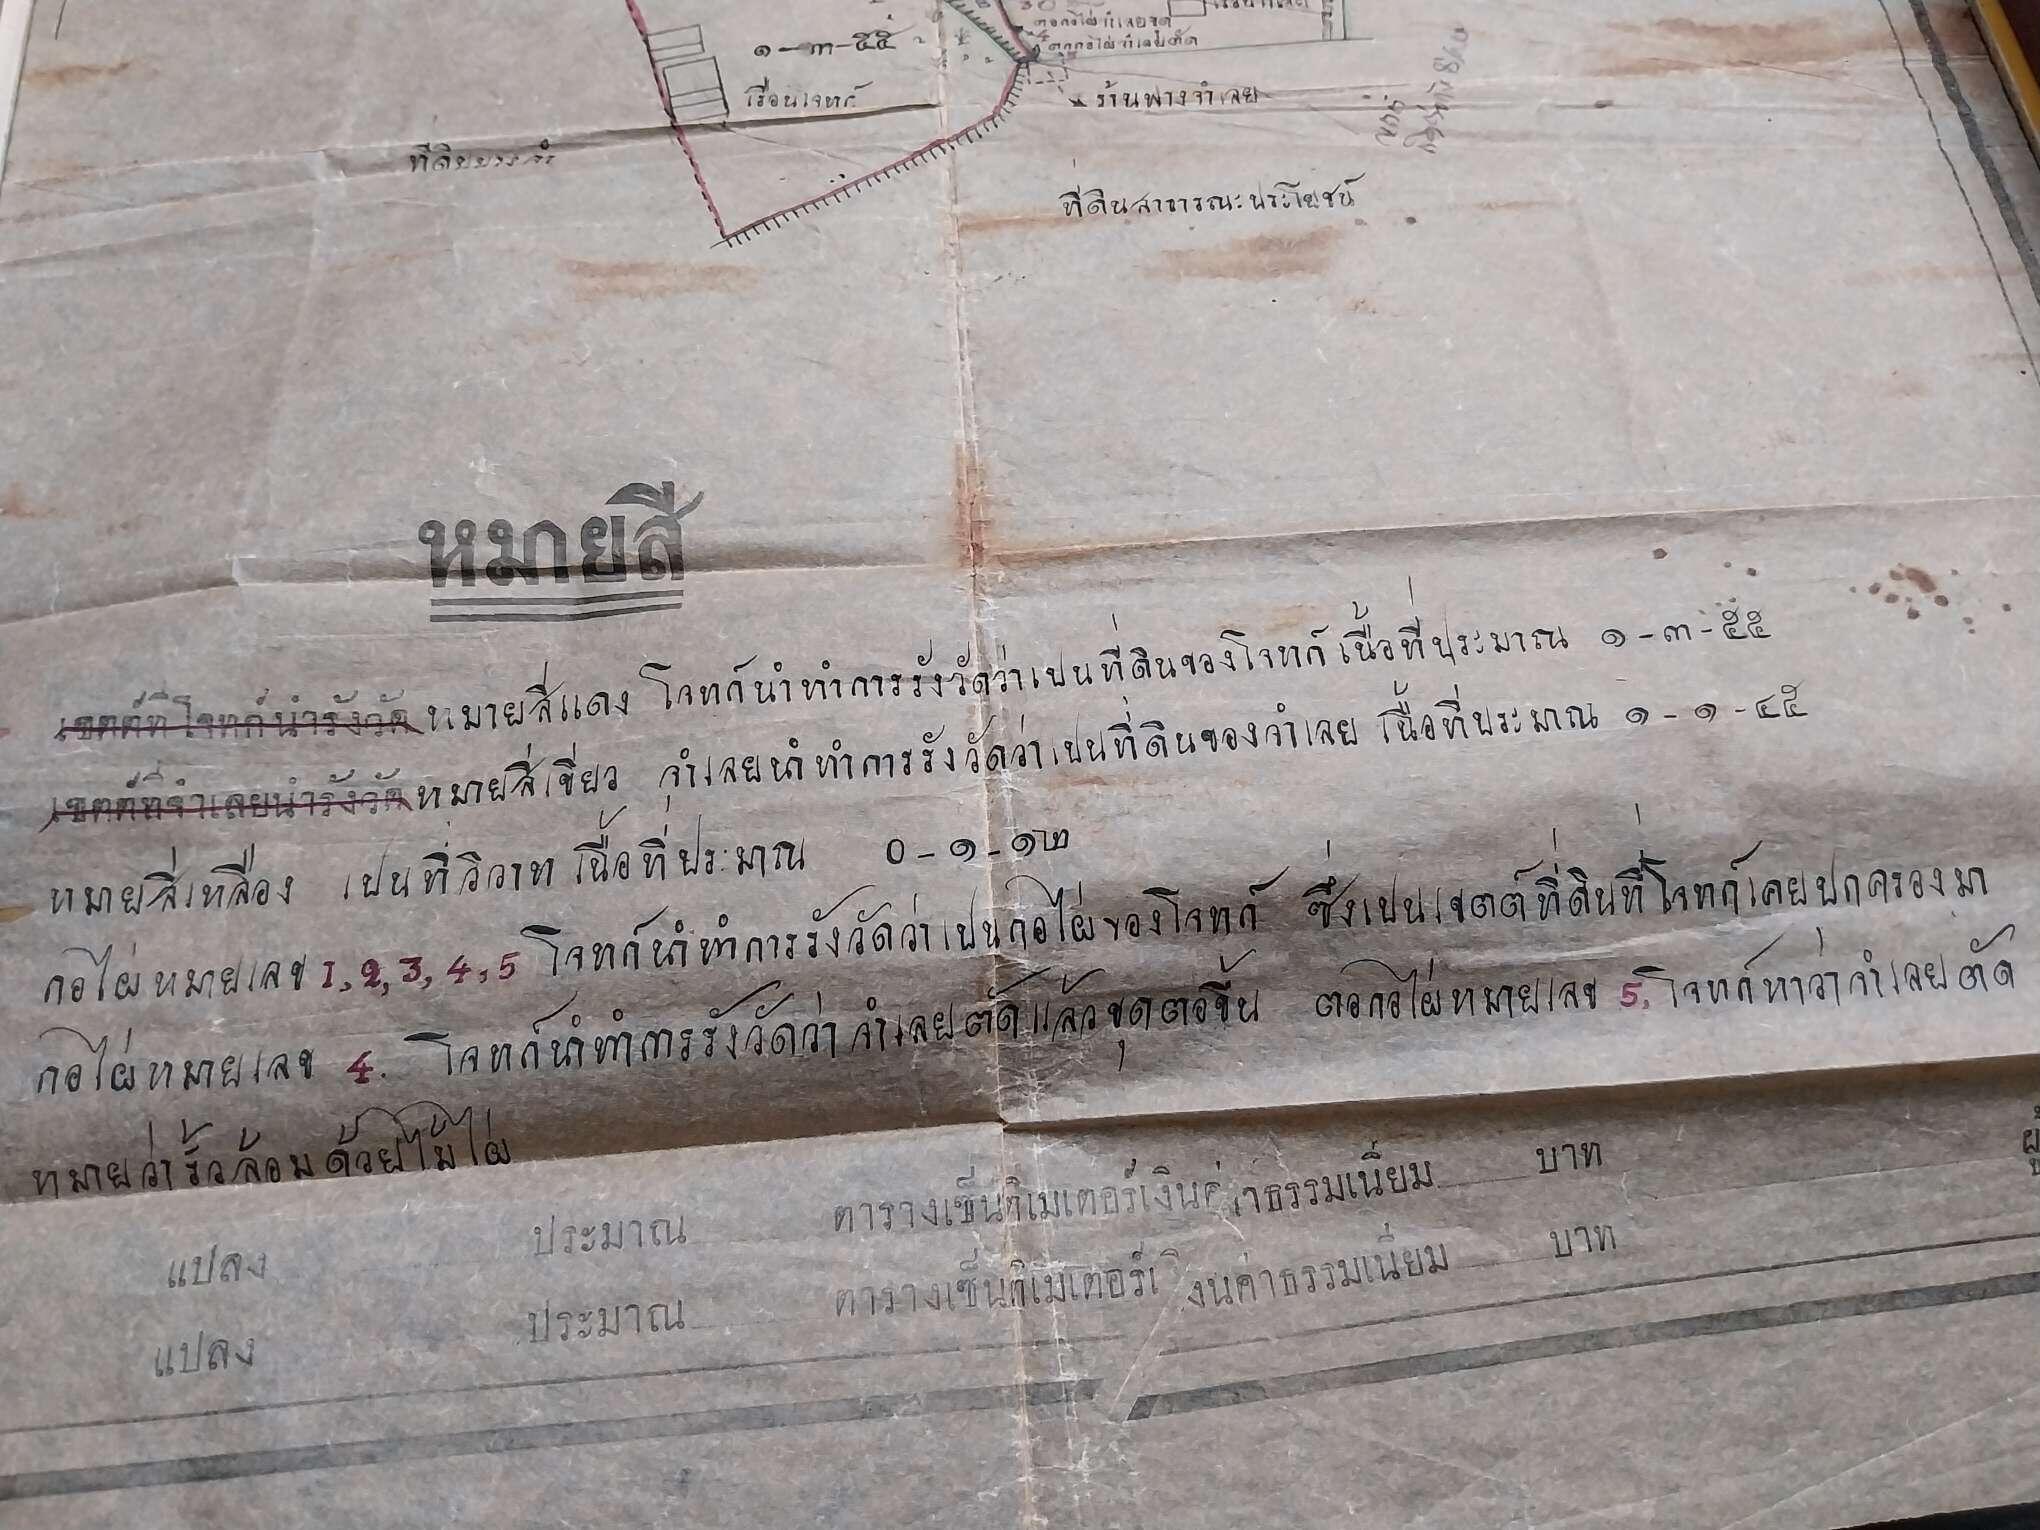 ๑-๓-๕๕
เรือนโจทก์
ร้านพางจำเลย
ที่ดินสาธารณะประโยชน์
หมายสี
เขตต์ที่โจทก์นำรังวัด หมายสีแดง โจทก์นำทำการรังวัดว่าเปนที่ดินของโจทก์ เนื้อที่ประมาณ ๑-๓-๕๕
เขตต์ที่จำเลยนำรังวัด หมายสีเขียว จำเลยนำทำการรังวัดว่าเปนที่ดินของจำเลย เนื้อที่ประมาณ ๑-๑-๔๕
หมายสีเหลือง เปนที่วิวาท เนื้อที่ประมาณ ๐-๑-๑๒
กอไผ่หมายเลข 1, 2, 3, 4, 5 โจทก์นำทำการรังวัดว่าเปนกอไผ่ของโจทก์ ซึ่งเปนเขตต์ที่ดินที่โจทก์เคยปกครองมา
กอไผ่หมายเลข 4. โจทก์นำทำการรังวัดว่าจำเลยตัดแล้วขุดตอขึ้น ตอกอไผ่หมายเลข 5, โจทก์หาว่าจำเลยตัด
หมายว่ารั้วล้อมด้วยไม้ไผ่
แปลง ประมาณ ตารางเซ็นติเมเตอร์เงินค่าธรรมเนียม บาท
แปลง ประมาณ ตารางเซ็นติเมเตอร์เงินค่าธรรมเนียม บาท